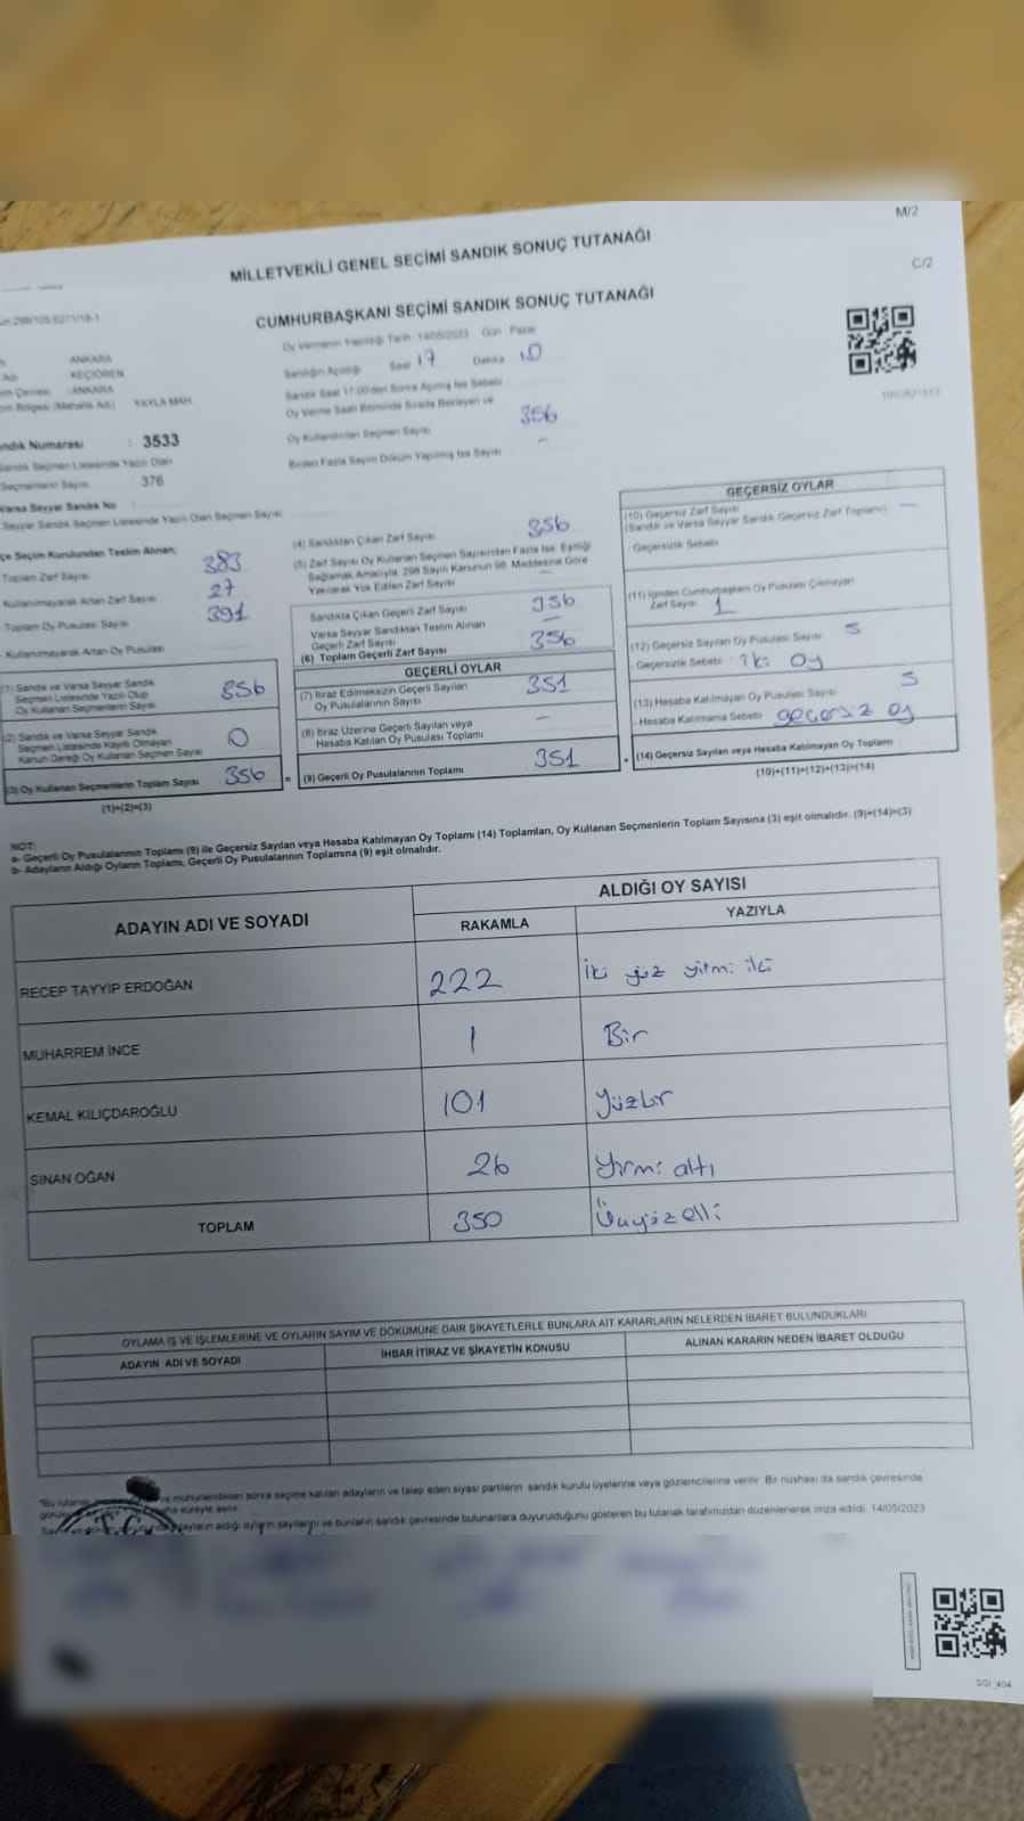 M/2
MİLLETVEKİLİ GENEL SEÇİMİ SANDIK SONUÇ TUTANAĞI
C/2
CUMHURBAŞKANI SEÇİMİ SANDIK SONUÇ TUTANAĞI
Oy Vermenin Yapıldığı Tarih : 14/05/2023 Gün : Pazar
ANKARA
Sandığın Açıldığı Saat 17 Dakika 10
KEÇİÖREN
ANKARA
Oy Verme Saati Bitiminde Sırada Bekleyen ve
YAYLA MAH
Oy Kullandırılan Seçmen Sayısı 356
Sandık Numarası : 3533
Birden Fazla Seçim Döküm Yapılmış İse Sayısı -
Sandık Seçmen Listesinde Yazılı Olan
Seçmenlerin Sayısı : 376
Varsa Seyyar Sandık No
Seyyar Sandık Seçmen Listesinde Yazılı Olan Seçmen Sayısı
İlçe Seçim Kurulundan Teslim Alınan;
Toplam Zarf Sayısı 383
Kullanılmayarak Artan Zarf Sayısı 27
Toplam Oy Pusulası Sayısı 391
Kullanılmayarak Artan Oy Pusulası
(1) Sandık ve Varsa Seyyar Sandık
Seçmen Listesinde Yazılı Olup
Oy Kullanan Seçmenlerin Sayısı 356
(2) Sandık ve Varsa Seyyar Sandık
Seçmen Listesinde Kayıtlı Olmayan
Kanun Gereği Oy Kullanan Seçmen Sayısı 0
(3) Oy Kullanan Seçmenlerin Toplam Sayısı 356
(1)+(2)=(3)
(4) Sandıktan Çıkan Zarf Sayısı 356
(5) Zarf Sayısı Oy Kullanan Seçmen Sayısından Fazla İse; Eşitliği
Sağlamak Amacıyla, 298 Sayılı Kanunun 98. Maddesine Göre
Yakılarak Yok Edilen Zarf Sayısı -
Sandıkta Çıkan Geçerli Zarf Sayısı 356
Varsa Seyyar Sandıktan Teslim Alınan
Geçerli Zarf Sayısı -
(6) Toplam Geçerli Zarf Sayısı 356
GEÇERLİ OYLAR
(7) İtiraz Edilmeksizin Geçerli Sayılan
Oy Pusulalarının Sayısı 351
(8) İtiraz Üzerine Geçerli Sayılan veya
Hesaba Katılan Oy Pusulası Toplamı -
(9) Geçerli Oy Pusulalarının Toplamı 351
GEÇERSİZ OYLAR
(10) Geçersiz Zarf Sayısı
(Sandık ve Varsa Seyyar Sandık Geçersiz Zarf Toplamı) -
Geçersizlik Sebebi
(11) İçinden Cumhurbaşkanı Oy Pusulası Çıkmayan
Zarf Sayısı 1
(12) Geçersiz Sayılan Oy Pusulası Sayısı 5
Geçersizlik Sebebi iki oy
(13) Hesaba Katılmayan Oy Pusulası Sayısı 5
Hesaba Katılmama Sebebi geçersiz oy
(14) Geçersiz Sayılan veya Hesaba Katılmayan Oy Toplamı
(10)+(11)+(12)+(13)=(14)
NOT:
a- Geçerli Oy Pusulalarının Toplamı (9) ile Geçersiz Sayılan veya Hesaba Katılmayan Oy Toplamı (14) Toplamları, Oy Kullanan Seçmenlerin Toplam Sayısına (3) eşit olmalıdır. (9)+(14)=(3)
b- Adayların Aldığı Oyların Toplamı, Geçerli Oy Pusulalarının Toplamına (9) eşit olmalıdır.
ADAYIN ADI VE SOYADI
ALDIĞI OY SAYISI
RAKAMLA
YAZIYLA
RECEP TAYYİP ERDOĞAN 222 İki yüz yirmi iki
MUHARREM İNCE 1 Bir
KEMAL KILIÇDAROĞLU 101 Yüzbir
SİNAN OĞAN 26 Yirmi altı
TOPLAM 350 Üçyüzelli
OYLAMA İŞ VE İŞLEMLERİNE VE OYLARIN SAYIM VE DÖKÜMÜNE DAİR ŞİKAYETLERLE BUNLARA AİT KARARLARIN NELERDEN İBARET BULUNDUKLARI
ADAYIN ADI VE SOYADI
İHBAR İTİRAZ VE ŞİKAYETİN KONUSU
ALINAN KARARIN NEDEN İBARET OLDUĞU
mühürlendikten sonra seçime katılan adayların ve talep eden siyasi partilerin sandık kurulu üyelerine veya gözlemcilerine verilir. Bir nüshası da sandık çevresinde
adayların aldığı oyların sayılarını ve bunların sandık çevresinde bulunanlara duyurulduğunu gösteren bu tutanak tarafımızdan düzenlenerek imza edildi. 14/05/2023
T.C.